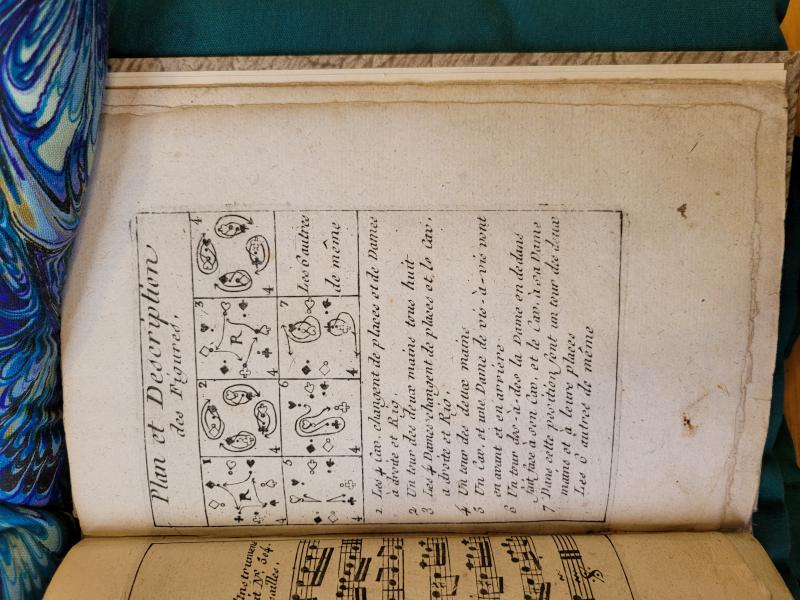 Plan et Description
des Figures.
1
2
3
4
R
R
4
4
4
4
5
6
7
Les 6 autres
de même
4
4
4
1 Les 4 Cav. changent de places et de Dames
à droite et Rig.
2 Un tour des deux mains tous huit
3 Les 4 Dames changent de places et de Cav.
à droite et Rig.
4 Un tour des deux mains
5 Un Cav. et une Dame de vis-à-vis vont
en avant et en arrière
6 Un tour dos-à-dos la Dame en dedans
fait face à son Cav. et le Cav. à sa Dame
7 Dans cette position font un tour des deux
mains et à leurs places
Les 6 autres de même
Instrument
et N.º 504.
sailles.